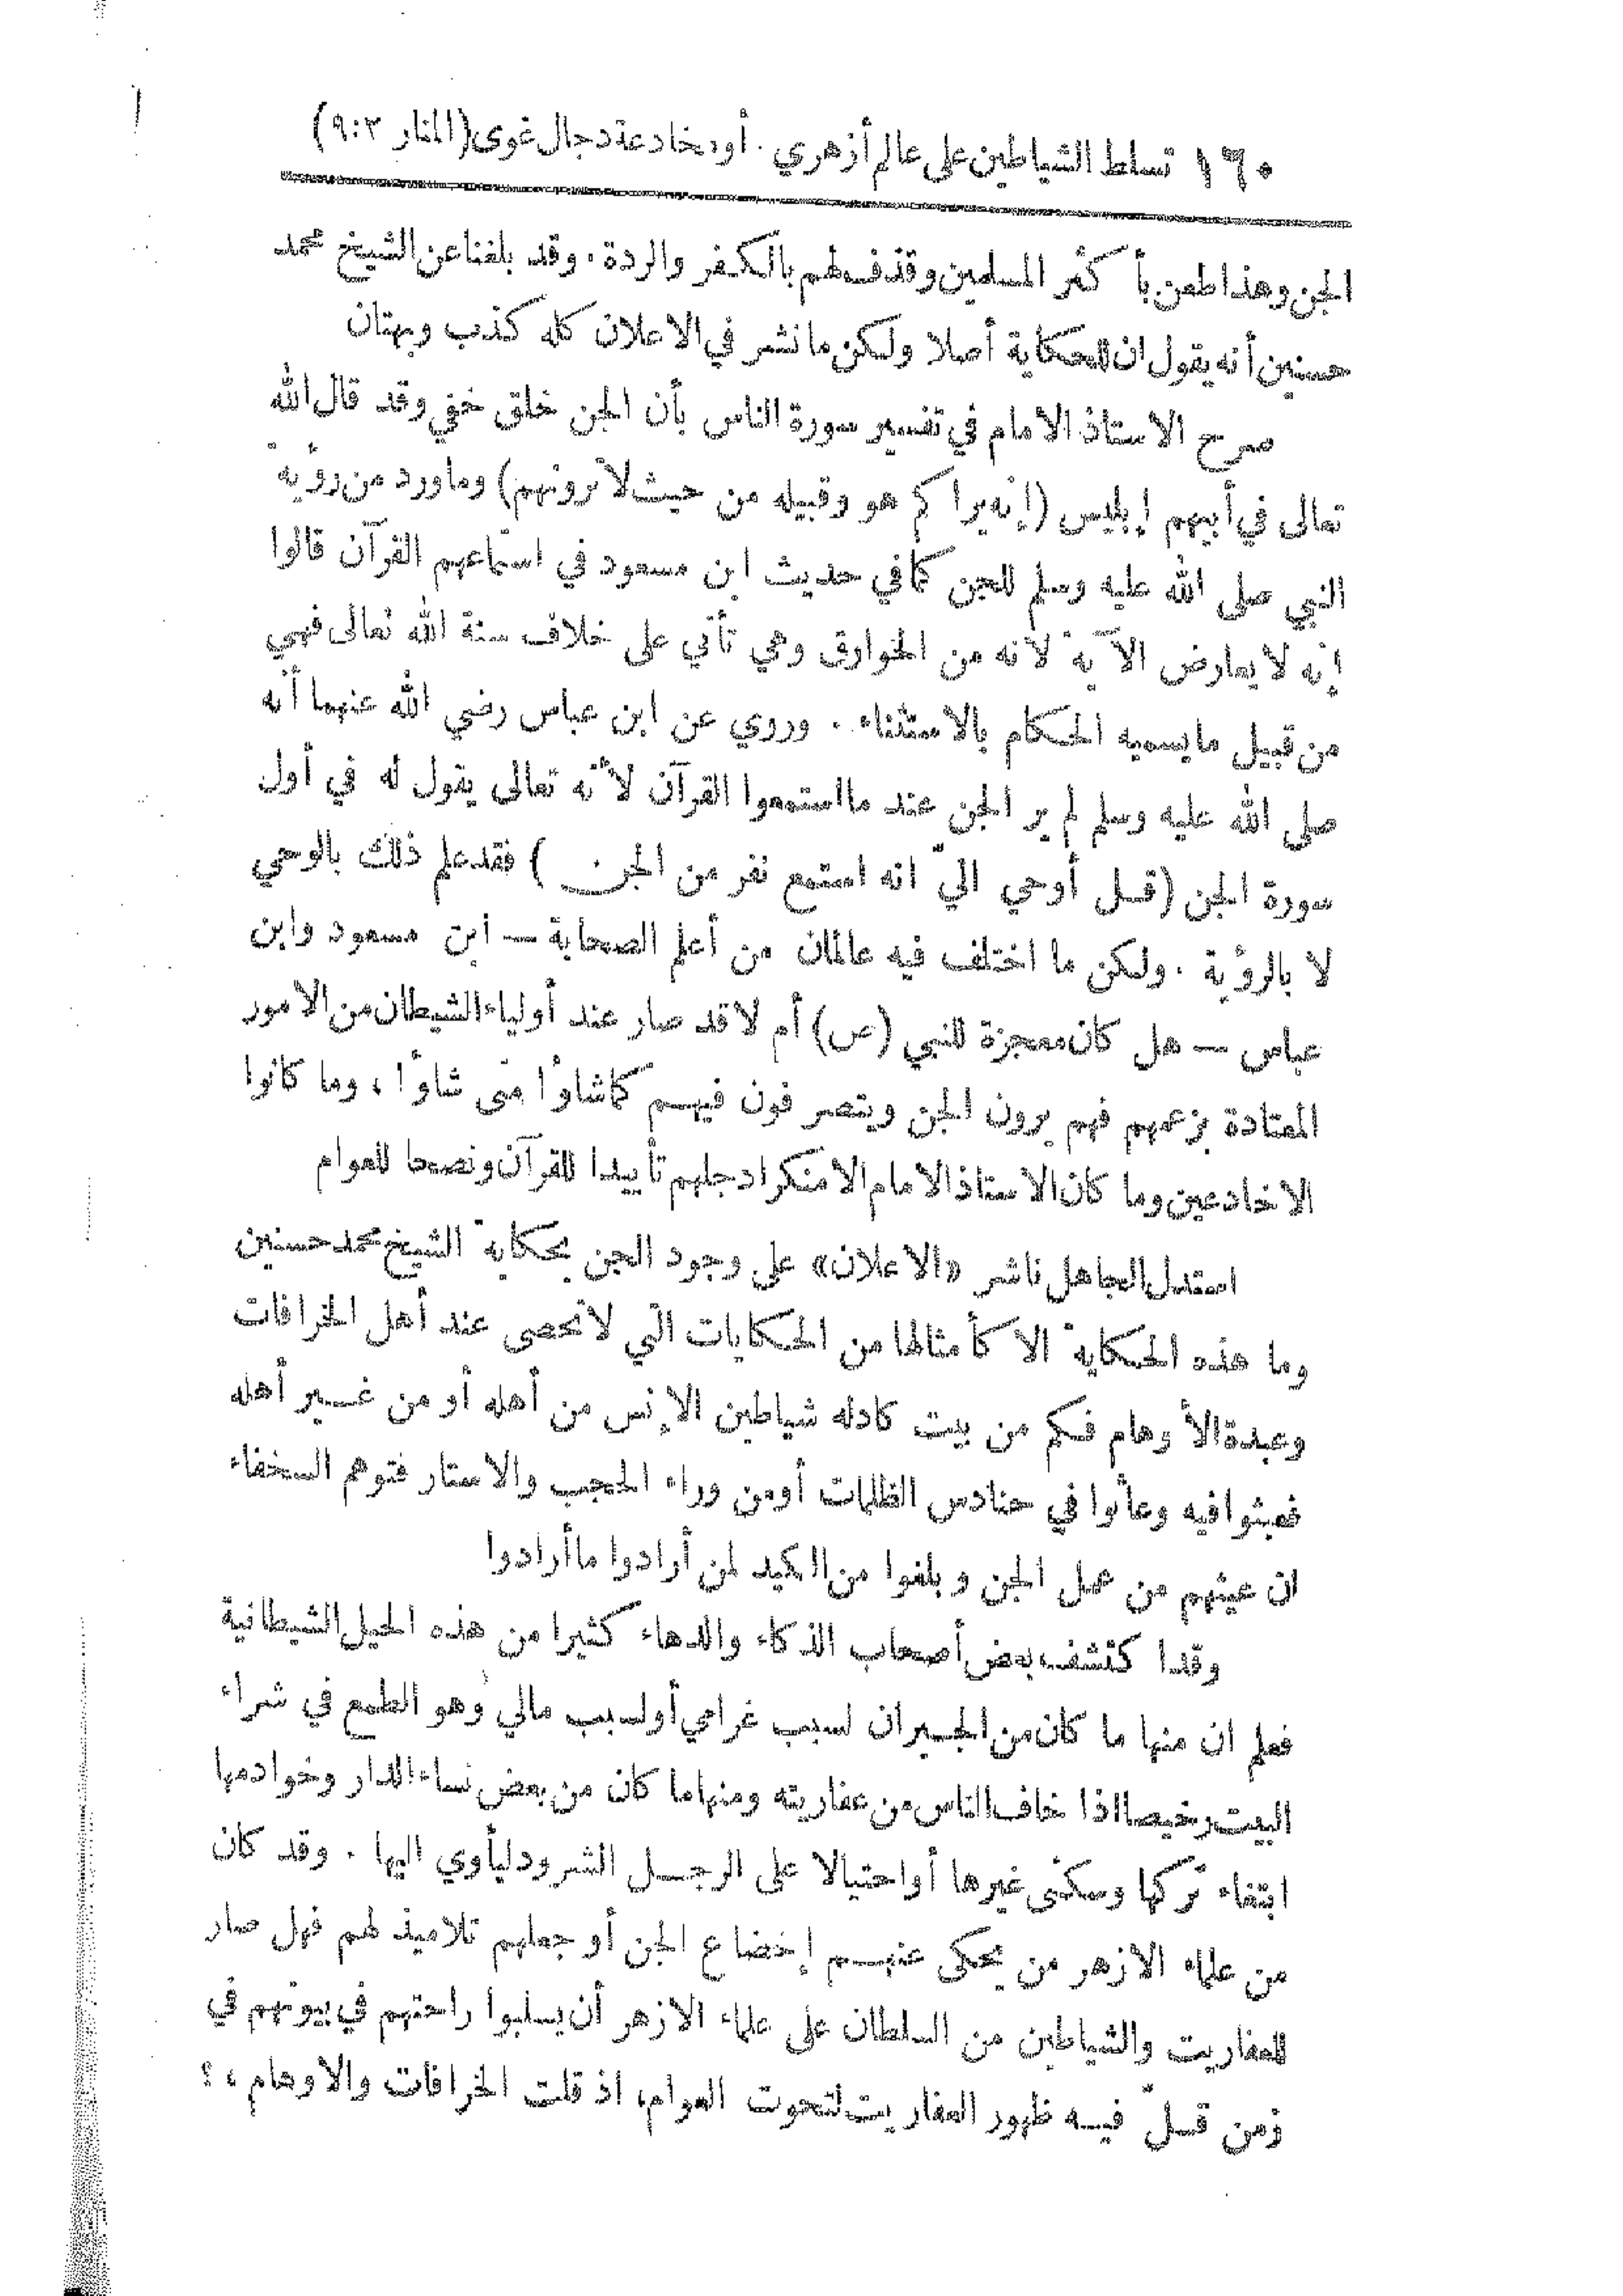 ١٦٠ تسلط الشياطين على عالم أزهري . أو مخادعة دجال غوى (المنار ٢:٩)
الجن وهذا طعن بأكثر المسلمين وقذف لهم بالكفر والردة . وقد بلغنا عن الشيخ محمد
حسنين أنه يقول ان للحكاية أصلا ولكن ما نشر في الاعلان كله كذب وبهتان
صرح الاستاذ الامام في تفسير سورة الناس بأن الجن خلق خفي وقد قال الله
تعالى في أبيهم إبليس (إنه يراكم هو وقبيله من حيث لا ترونهم) وما ورد من رؤية
النبي صلى الله عليه وسلم للجن كما في حديث ابن مسعود في استماعهم القرآن قالوا
إنه لا يعارض الآية لأنه من الخوارق وهي تأتي على خلاف سنة الله تعالى فهي
من قبيل ما يسميه الحكام بالاستثناء . وروي عن ابن عباس رضي الله عنهما أنه
صلى الله عليه وسلم لم ير الجن عند ما استمعوا القرآن لأنه تعالى يقول له في أول
سورة الجن (قل أوحي اليّ انه استمع نفر من الجن) فقد علم ذلك بالوحي
لا بالرؤية . ولكن ما اختلف فيه عالمان من أعلم الصحابة — ابن مسعود وابن
عباس — هل كان معجزة للنبي (ص) أم لا قد صار عند أولياء الشيطان من الامور
المعتادة بزعمهم فهم يرون الجن ويتصرفون فيهم كما شاؤا متى شاؤا ، وما كانوا
الا خادعين وما كان الاستاذ الامام الا منكرا دجلهم تأييدا للقرآن ونصحا للعوام
استدل الجاهل ناشر «الاعلان» على وجود الجن بحكاية الشيخ محمد حسنين
وما هذه الحكاية الا كأمثالها من الحكايات التي لا تحصى عند أهل الخرافات
وعبدة الأوهام فكم من بيت كاد له شياطين الإنس من أهله أو من غير أهله
فعبثوا فيه وعاثوا في حنادس الظلمات أو من وراء الحجب والاستار فتوهم السخفاء
ان عيثهم من عمل الجن وبلغوا من الكيد لمن أرادوا ما أرادوا
وقد اكتشف بعض أصحاب الذكاء والدهاء كثيرا من هذه الحيل الشيطانية
فعلم ان منها ما كان من الجيران لسبب غرامي أو لسبب مالي وهو الطمع في شراء
البيت رخيصا اذا خاف الناس من عفاريته ومنها ما كان من بعض نساء الدار وخوادمها
ابتغاء تركها وسكنى غيرها أو احتيالا على الرجل الشرود ليأوي اليها . وقد كان
من علماء الازهر من يحكى عنهم إخضاع الجن أو جعلهم تلاميذ لهم فهل صار
للعفاريت والشياطين من السلطان على علماء الازهر أن يسلبوا راحتهم في بيوتهم في
زمن قلّ فيه ظهور العفاريت لتحوت العوام، اذ قلت الخرافات والاوهام ، ؟